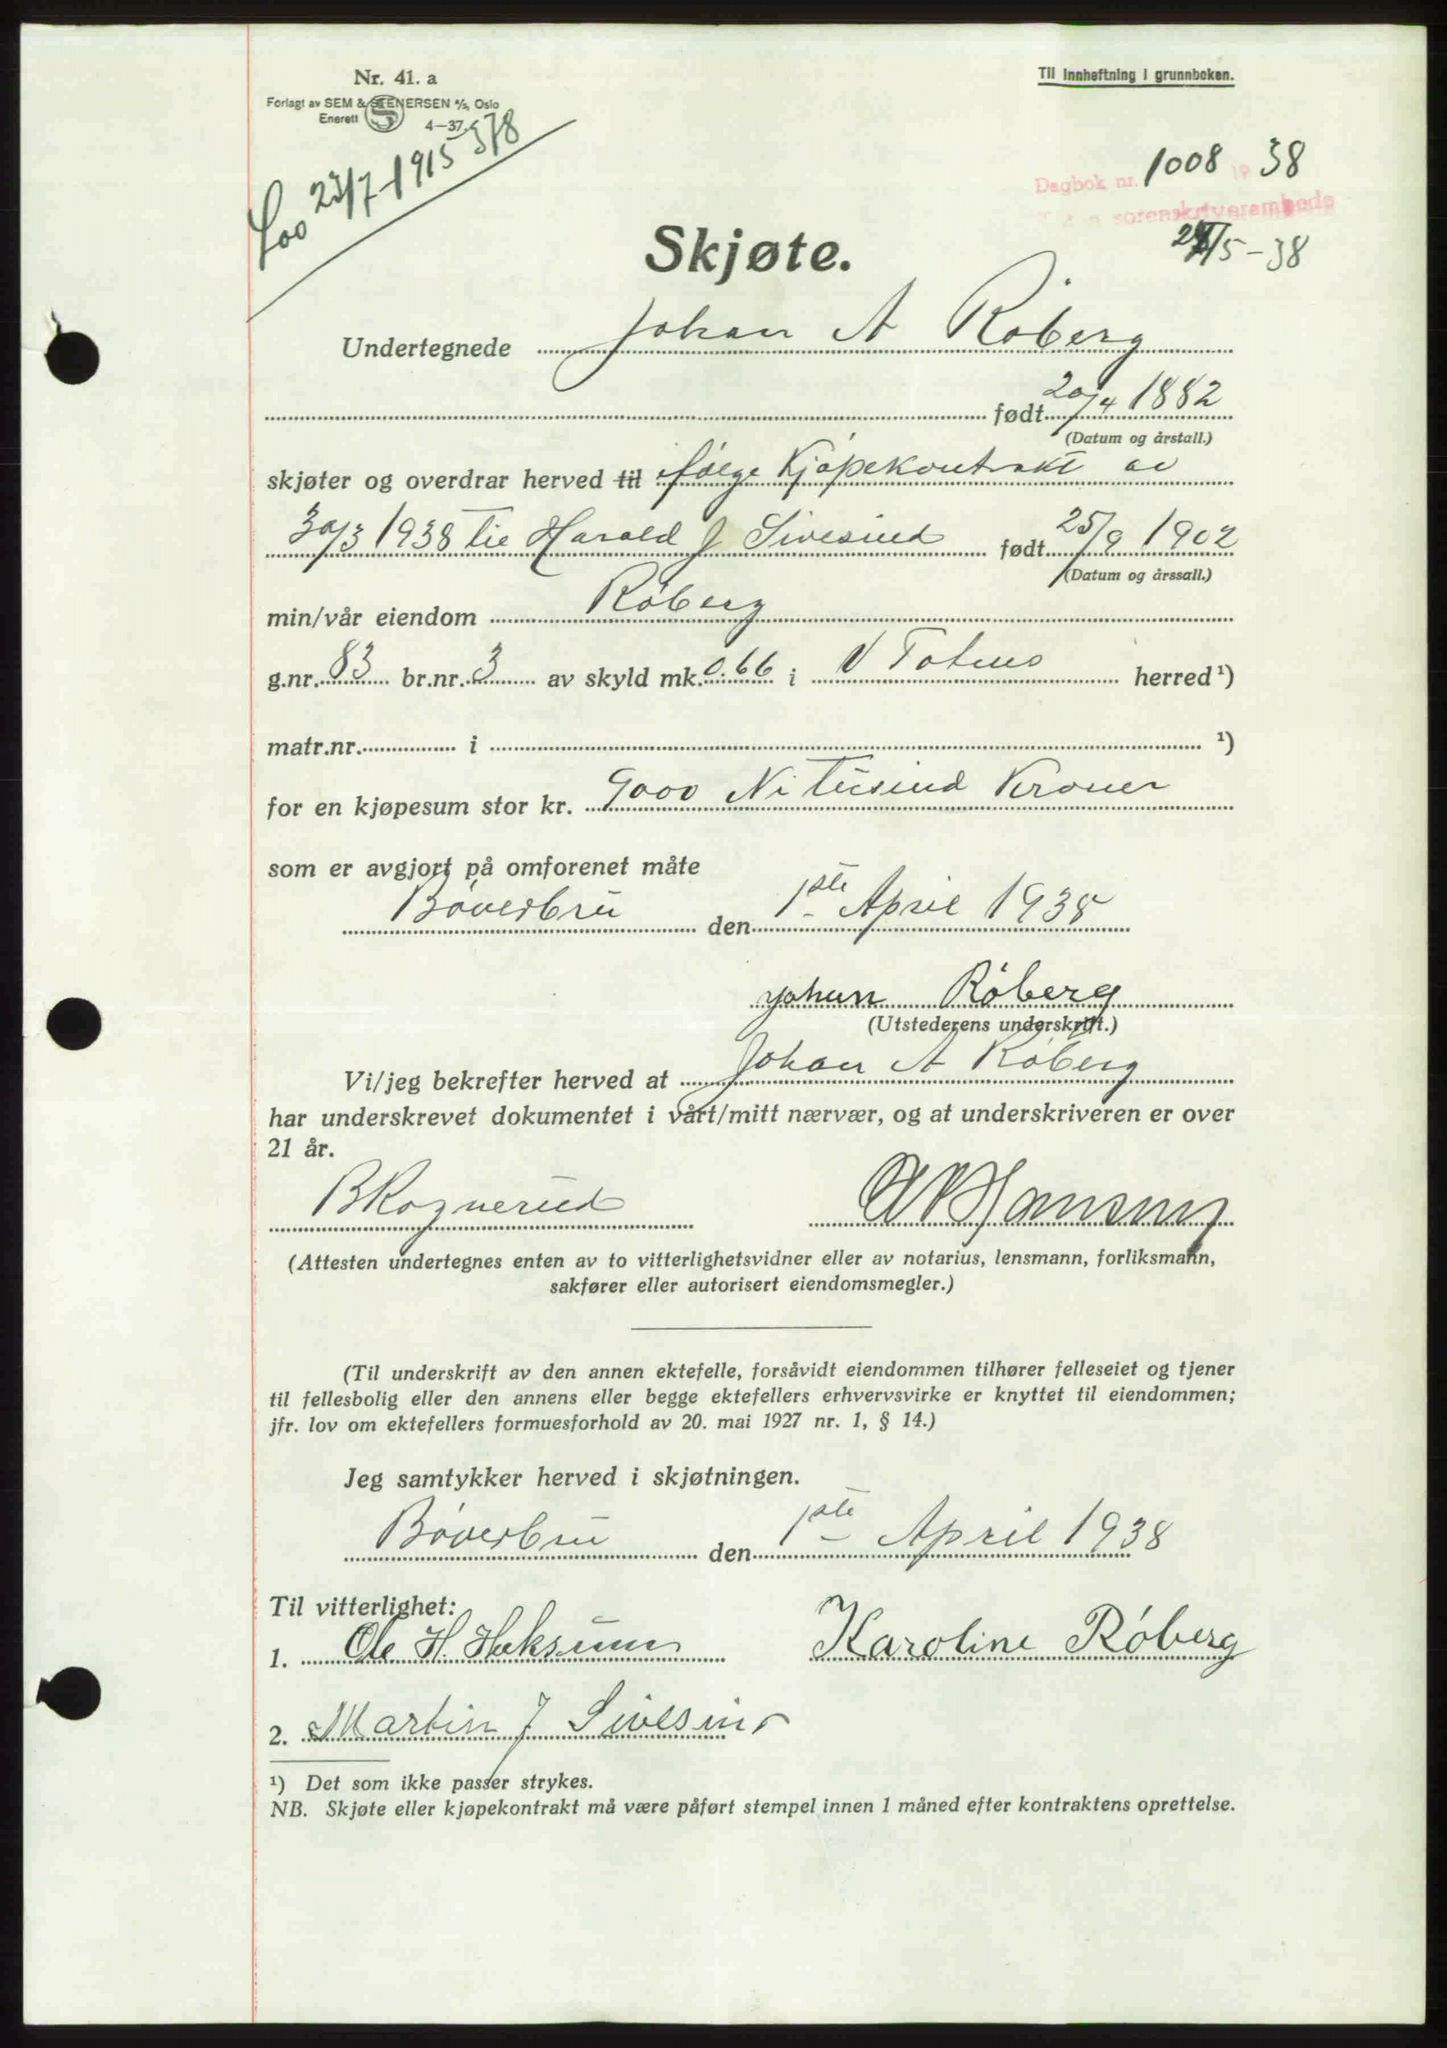 Nr. 41. a
Forlagt av SEM & STENERSEN A/S, Oslo
Enerett
4-37.
Til innheftning i grunnboken.
23/7-1915 378
Dagbok nr. 1008 19 38
sorenskriverembede
/5-38
Skjøte.
Undertegnede Johan A Røberg
født 20/4 1882
(Datum og årstall.)
skjøter og overdrar herved til ifølge Kjøpekontrakt av
30/3 1938 til Harald J Sivesind født 25/9 1902
(Datum og årssall.)
min/vår eiendom Røberg
g.nr. 83 br.nr. 3 av skyld mk. 0.66 i V Totens herred ¹)
matr.nr. i ¹)
for en kjøpesum stor kr. 9000 Ni tusind Kroner
som er avgjort på omforenet måte
Bøverbru den 1ste April 1938
Johan Røberg
(Utstederens underskrift.)
Vi/jeg bekrefter herved at Johan A Røberg
har underskrevet dokumentet i vårt/mitt nærvær, og at underskriveren er over
21 år.
B Rognerud Hansen
(Attesten undertegnes enten av to vitterlighetsvidner eller av notarius, lensmann, forliksmann,
sakfører eller autorisert eiendomsmegler.)
(Til underskrift av den annen ektefelle, forsåvidt eiendommen tilhører felleseiet og tjener
til fellesbolig eller den annens eller begge ektefellers erhvervsvirke er knyttet til eiendommen;
jfr. lov om ektefellers formuesforhold av 20. mai 1927 nr. 1, § 14.)
Jeg samtykker herved i skjøtningen.
Bøverbru den 1ste April 1938
Til vitterlighet:
1. Ole H. Haksum Karoline Røberg
2. Martin J Sivesind
¹) Det som ikke passer strykes.
NB. Skjøte eller kjøpekontrakt må være påført stempel innen 1 måned efter kontraktens oprettelse.